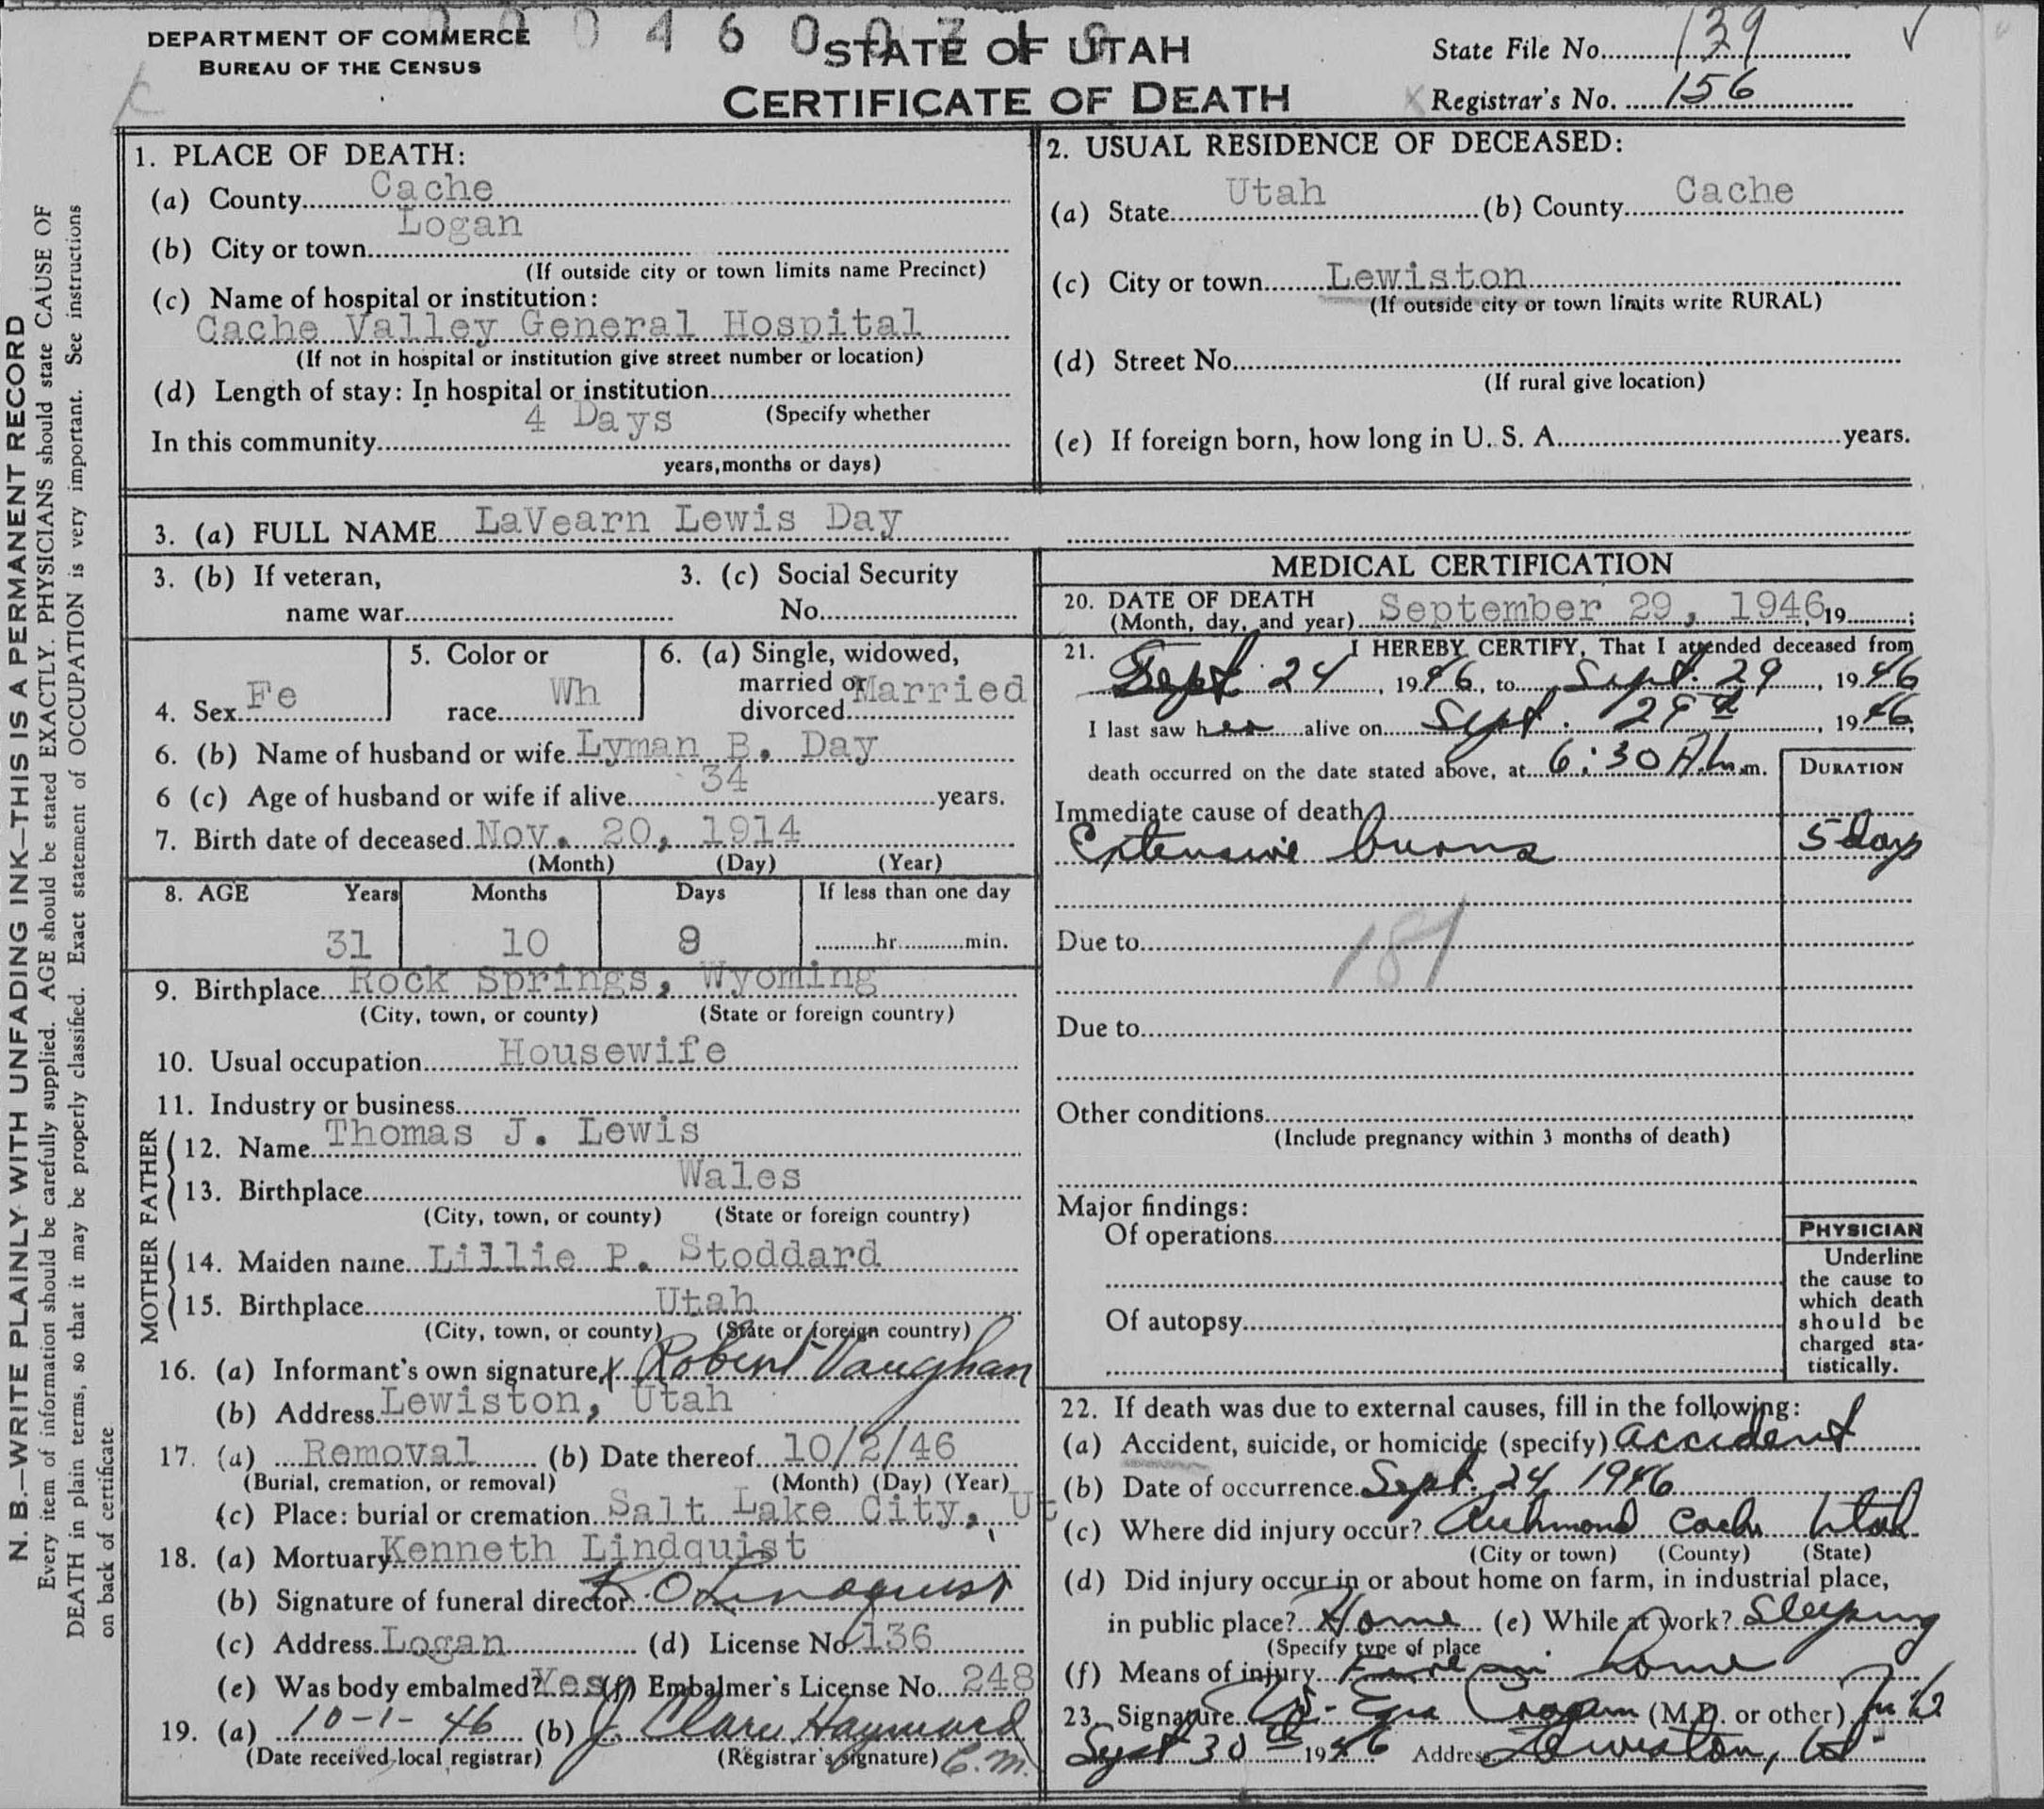 DEPARTMENT OF COMMERCE
BUREAU OF THE CENSUS
STATE OF UTAH
CERTIFICATE OF DEATH
State File No. 139
Registrar's No. 156
N. B.—WRITE PLAINLY WITH UNFADING INK—THIS IS A PERMANENT RECORD
Every item of information should be carefully supplied. AGE should be stated EXACTLY. PHYSICIANS should state CAUSE OF
DEATH in plain terms, so that it may be properly classified. Exact statement of OCCUPATION is very important. See instructions
on back of certificate
1. PLACE OF DEATH:
(a) County Cache
(b) City or town Logan
(If outside city or town limits name Precinct)
(c) Name of hospital or institution:
Cache Valley General Hospital
(If not in hospital or institution give street number or location)
(d) Length of stay: In hospital or institution
4 Days (Specify whether
In this community
years, months or days)
2. USUAL RESIDENCE OF DECEASED:
(a) State Utah (b) County Cache
(c) City or town Lewiston
(If outside city or town limits write RURAL)
(d) Street No.
(If rural give location)
(e) If foreign born, how long in U. S. A. years.
3. (a) FULL NAME LaVearn Lewis Day
3. (b) If veteran,
name war
3. (c) Social Security
No.
4. Sex Fe
5. Color or
race Wh
6. (a) Single, widowed,
married or
divorced Married
6. (b) Name of husband or wife Lyman B. Day
6 (c) Age of husband or wife if alive 34 years.
7. Birth date of deceased Nov. 20, 1914
(Month) (Day) (Year)
8. AGE Years Months Days If less than one day
31 10 9 hr. min.
9. Birthplace Rock Springs, Wyoming
(City, town, or county) (State or foreign country)
10. Usual occupation Housewife
11. Industry or business
FATHER
12. Name Thomas J. Lewis
13. Birthplace Wales
(City, town, or county) (State or foreign country)
MOTHER
14. Maiden name Lillie P. Stoddard
15. Birthplace Utah
(City, town, or county) (State or foreign country)
16. (a) Informant's own signature x Robert Vaughan
(b) Address Lewiston, Utah
17. (a) Removal (b) Date thereof 10/2/46
(Burial, cremation, or removal) (Month) (Day) (Year)
(c) Place: burial or cremation Salt Lake City, Ut
18. (a) Mortuary Kenneth Lindquist
(b) Signature of funeral director K. O. Lindquist
(c) Address Logan (d) License No. 136
(e) Was body embalmed? Yes (f) Embalmer's License No. 248
19. (a) 10-1-46 (b) J. Clare Hayward
(Date received local registrar) (Registrar's signature) C.M.
MEDICAL CERTIFICATION
20. DATE OF DEATH
(Month, day, and year) September 29, 1946, 19 ;
21. I HEREBY CERTIFY, That I attended deceased from
Sept 24, 1946, to Sept. 29, 1946
I last saw her alive on Sept. 29th, 1946,
death occurred on the date stated above, at 6:30 A.m.m.
DURATION
Immediate cause of death
Extensive burns 5 days
Due to
181
Due to
Other conditions
(Include pregnancy within 3 months of death)
Major findings:
Of operations
Of autopsy
PHYSICIAN
Underline
the cause to
which death
should be
charged sta-
tistically.
22. If death was due to external causes, fill in the following:
(a) Accident, suicide, or homicide (specify) accident
(b) Date of occurrence Sept. 24 1946
(c) Where did injury occur? Richmond Cache Utah
(City or town) (County) (State)
(d) Did injury occur in or about home on farm, in industrial place,
in public place? Home (e) While at work? Sleeping
(Specify type of place
(f) Means of injury Fire in home
23. Signature (M.D. or other)
Sept 30th 1946 Address Lewiston, Ut